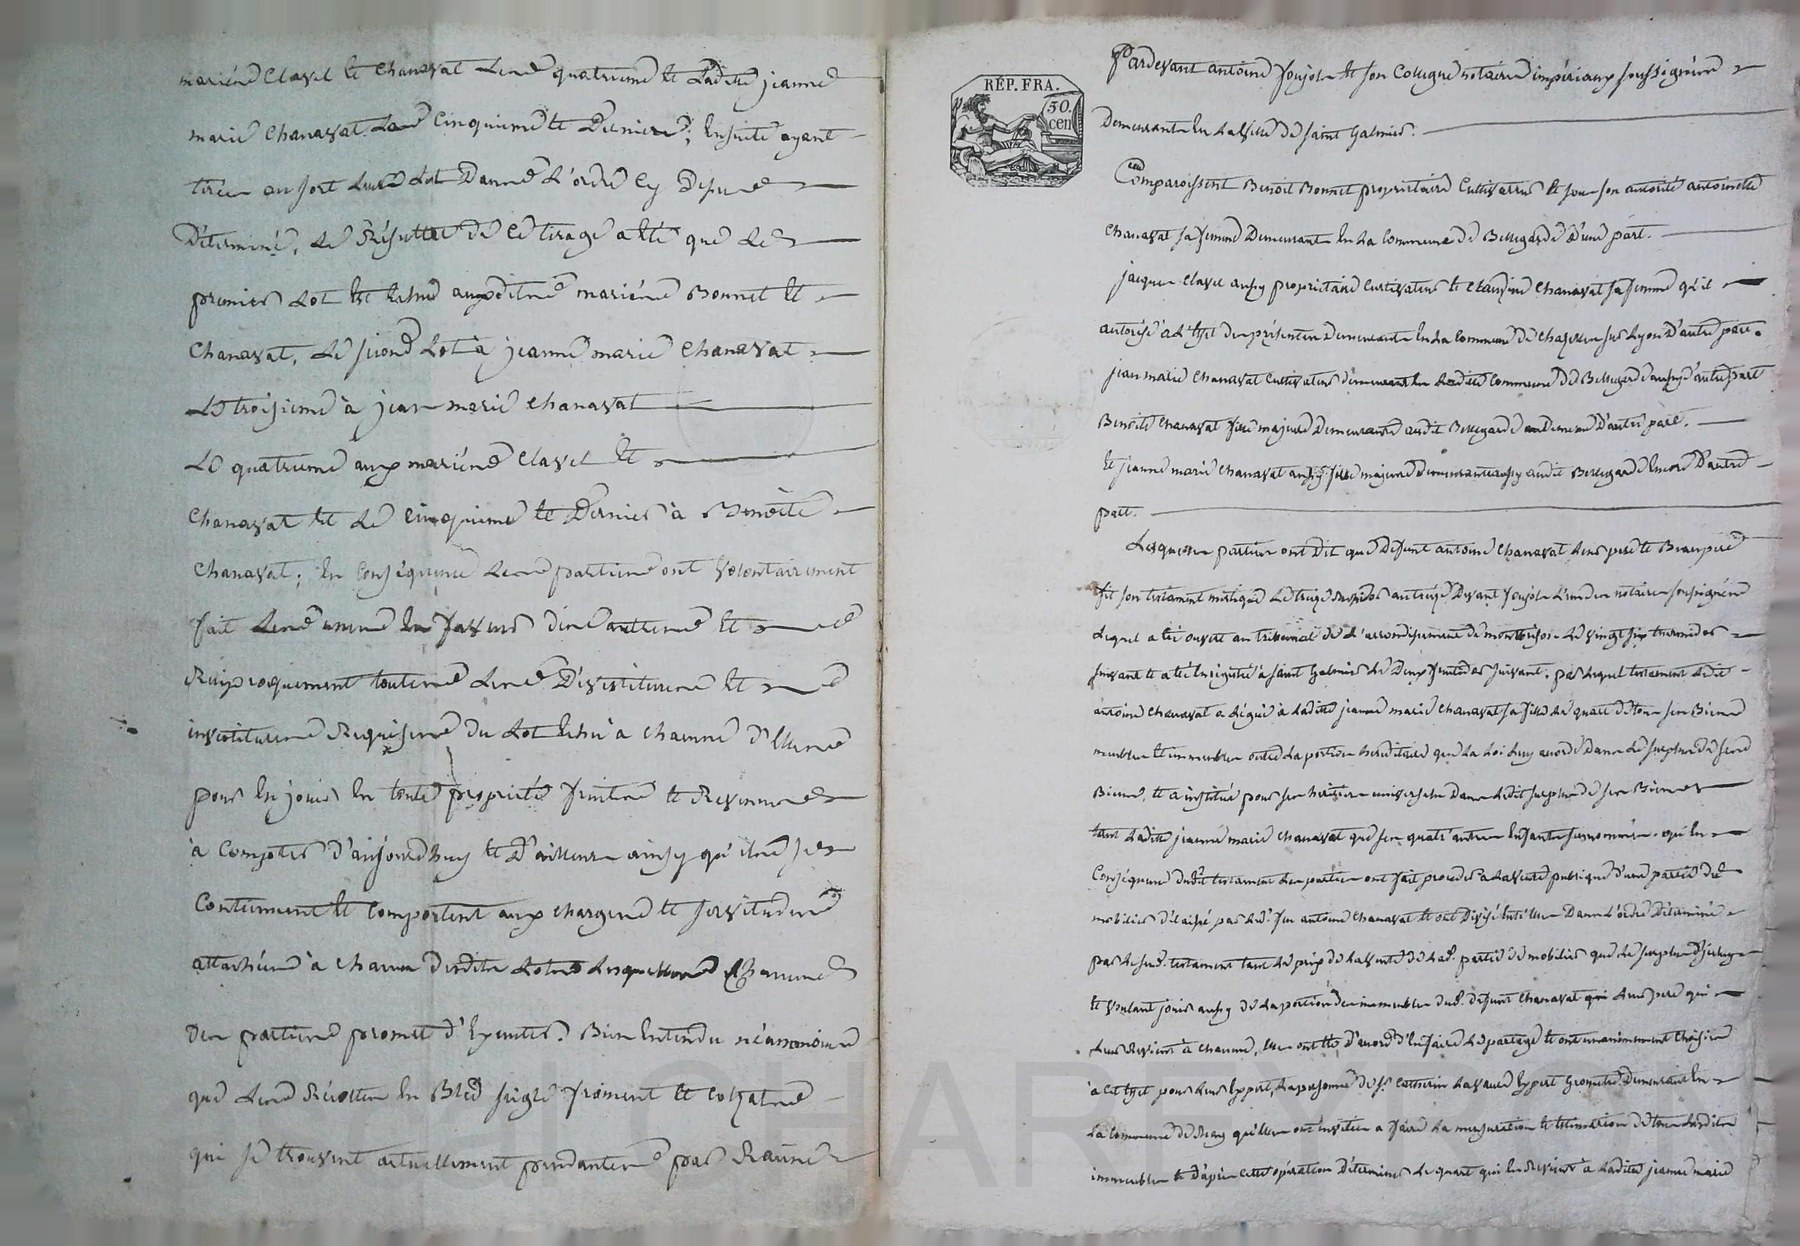 mariés Clavel et Chanavat les quatrieme et Ladite jeanne
marie Chanavat Les Cinquieme et Dernier; Ensuite ayant
tirés au sort Leurs Lots Dans L'ordre Cy Dessus
Déterminé, Le Résultat de Ce tirage a été que Le
premier Lot est Echu auxdits mariés Bonnet et
Chanavat, Le second Lot à jeanne marie Chanavat
Le troisieme à jean marie Chanavat
Le quatrieme aux mariés Clavel et
Chanavat et Le Cinquieme et Dernier à Benoite
Chanavat; En Conséquence Les parties ont volontairement
fait Les unes En faveur des autres et
Réciproquement toutes Les Dévestitures et
investitures Requises du Lot Echu à Chacune d'Elles
pour En jouir En toute propriété fruits et Revenus
à Compter d'aujourd'huy et D'ailleurs ainsy qu'ils se
Contiennent et Comportent aux charges et servitudes
attachées à Chacun desdits Lots Lesquelles Chacune
des parties promet d'Executer. Bien Entendu néanmoins
que Les Récoltes En Bled seigle froment et
qui se trouvent actuellement pendantes par Racines
RÉP. FRA.
50. cen
Pardevant antoine foujols et son Collegue notaires impériaux soussignés
Demeurants En La ville de saint Galmier.
Comparoissent Benoit Bonnet proprietaire Cultivateur et sous son autorité antoinette
Chanavat sa femme Demeurant En La Commune de Bellegarde d'une part.
jacques Clavel aussy proprietaire Cultivateur et Claudine Chanavat sa femme qu'il
autorise à L'effet des présentes Demeurants En La Commune de Chazelles sur Lyon D'autre part.
jean marie Chanavat Cultivateur demeurant En Ladite Commune de Bellegarde aussy d'autre part
Benoite Chanavat fille majeure Demeurante audit Bellegarde D'autre part.
Et jeanne marie Chanavat aussy fille majeure demeurante aussy audit Bellegarde Encore D'autre
part.
Lesquelles parties ont dit que Defunt antoine Chanavat Leur pere et Beaupere
fit son testament mistique Le treize an treize Devant foujols L'un des notaires soussignés
Lequel a été ouvert au tribunal de L'arrondissement de montbrison Le vingt six thermidor
suivant et a été Enregistré à saint Galmier Le Deux fructidor suivant. par Lequel testament Ledit
antoine Chanavat a Légué à Ladite jeanne marie Chanavat sa fille Le quart de tous ses Biens
meubles et immeubles outre La portion hereditaire que La Loi Luy accorde Dans Le surplus de ses
Biens, et a institué pour ses heritiers universels Dans Ledit surplus de ses Biens
tant Ladite jeanne marie Chanavat que ses quatr'autres Enfants susnommés. qu'En
Conséquence dudit testament Les parties ont fait proceder à La vente publique d'une partie du
mobilier délaissé par Led. feu antoine Chanavat et ont Divisé Entr'elles Dans L'ordre Déterminé
par Le sus. testament tant Le prix de La vente de Lad. partie de mobilier que Le surplus d'iceluy
Et voulant jouir aussy de La portion des immeubles dud. defunt Chanavat Leur pere qui
Leur Revient à Chacune, Elles ont été D'accord d'En faire Le partage et ont unanimement Choisi
à Cet effet pour Leur Expert, La personne de sr. Catherin Lassaud Expert Géometre Demeurant En
La Commune de qu'Elles ont invité à faire La mensuration et Estimation de tous Lesdits
immeubles et D'après cette opération Déterminer Le quart qui En Revient à Ladite jeanne marie